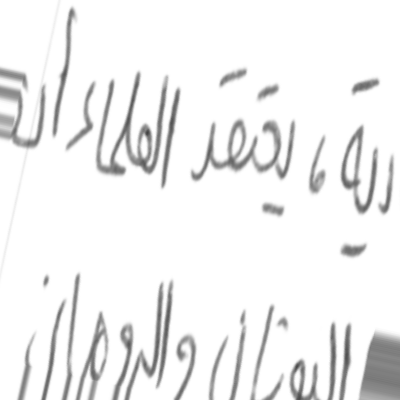 رية ، يعتقد العلماء أن
اليونان والرومان